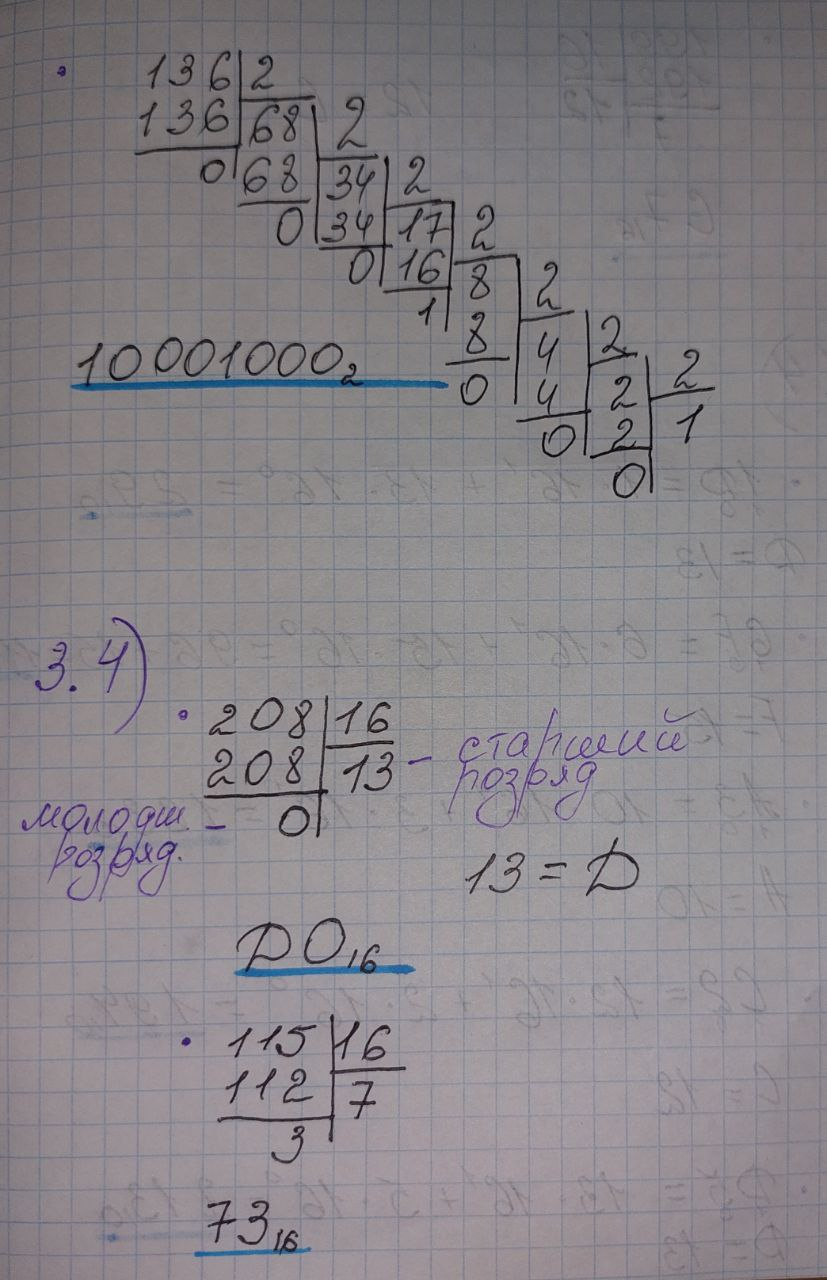 136 2
136 68 2
0 68 34 2
0 34 17 2
0 16 8 2
1 8 4 2
10001000₂
0 4 2 2
0 2 1
0
3.4)
208 16
208 13 - старший
розряд
молодш. - 0
розряд.
13 = D
D0₁₆
115 16
112 7
3
73₁₆